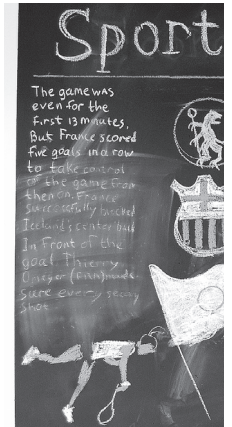 Sport
The game was
even for the
first 13 minutes,
But France scored
five goals in a row
to take control
of the game from
then on. France
successfully
Iceland's center back
In front of the
goal Thierry
Omeyer made
sure every
shot